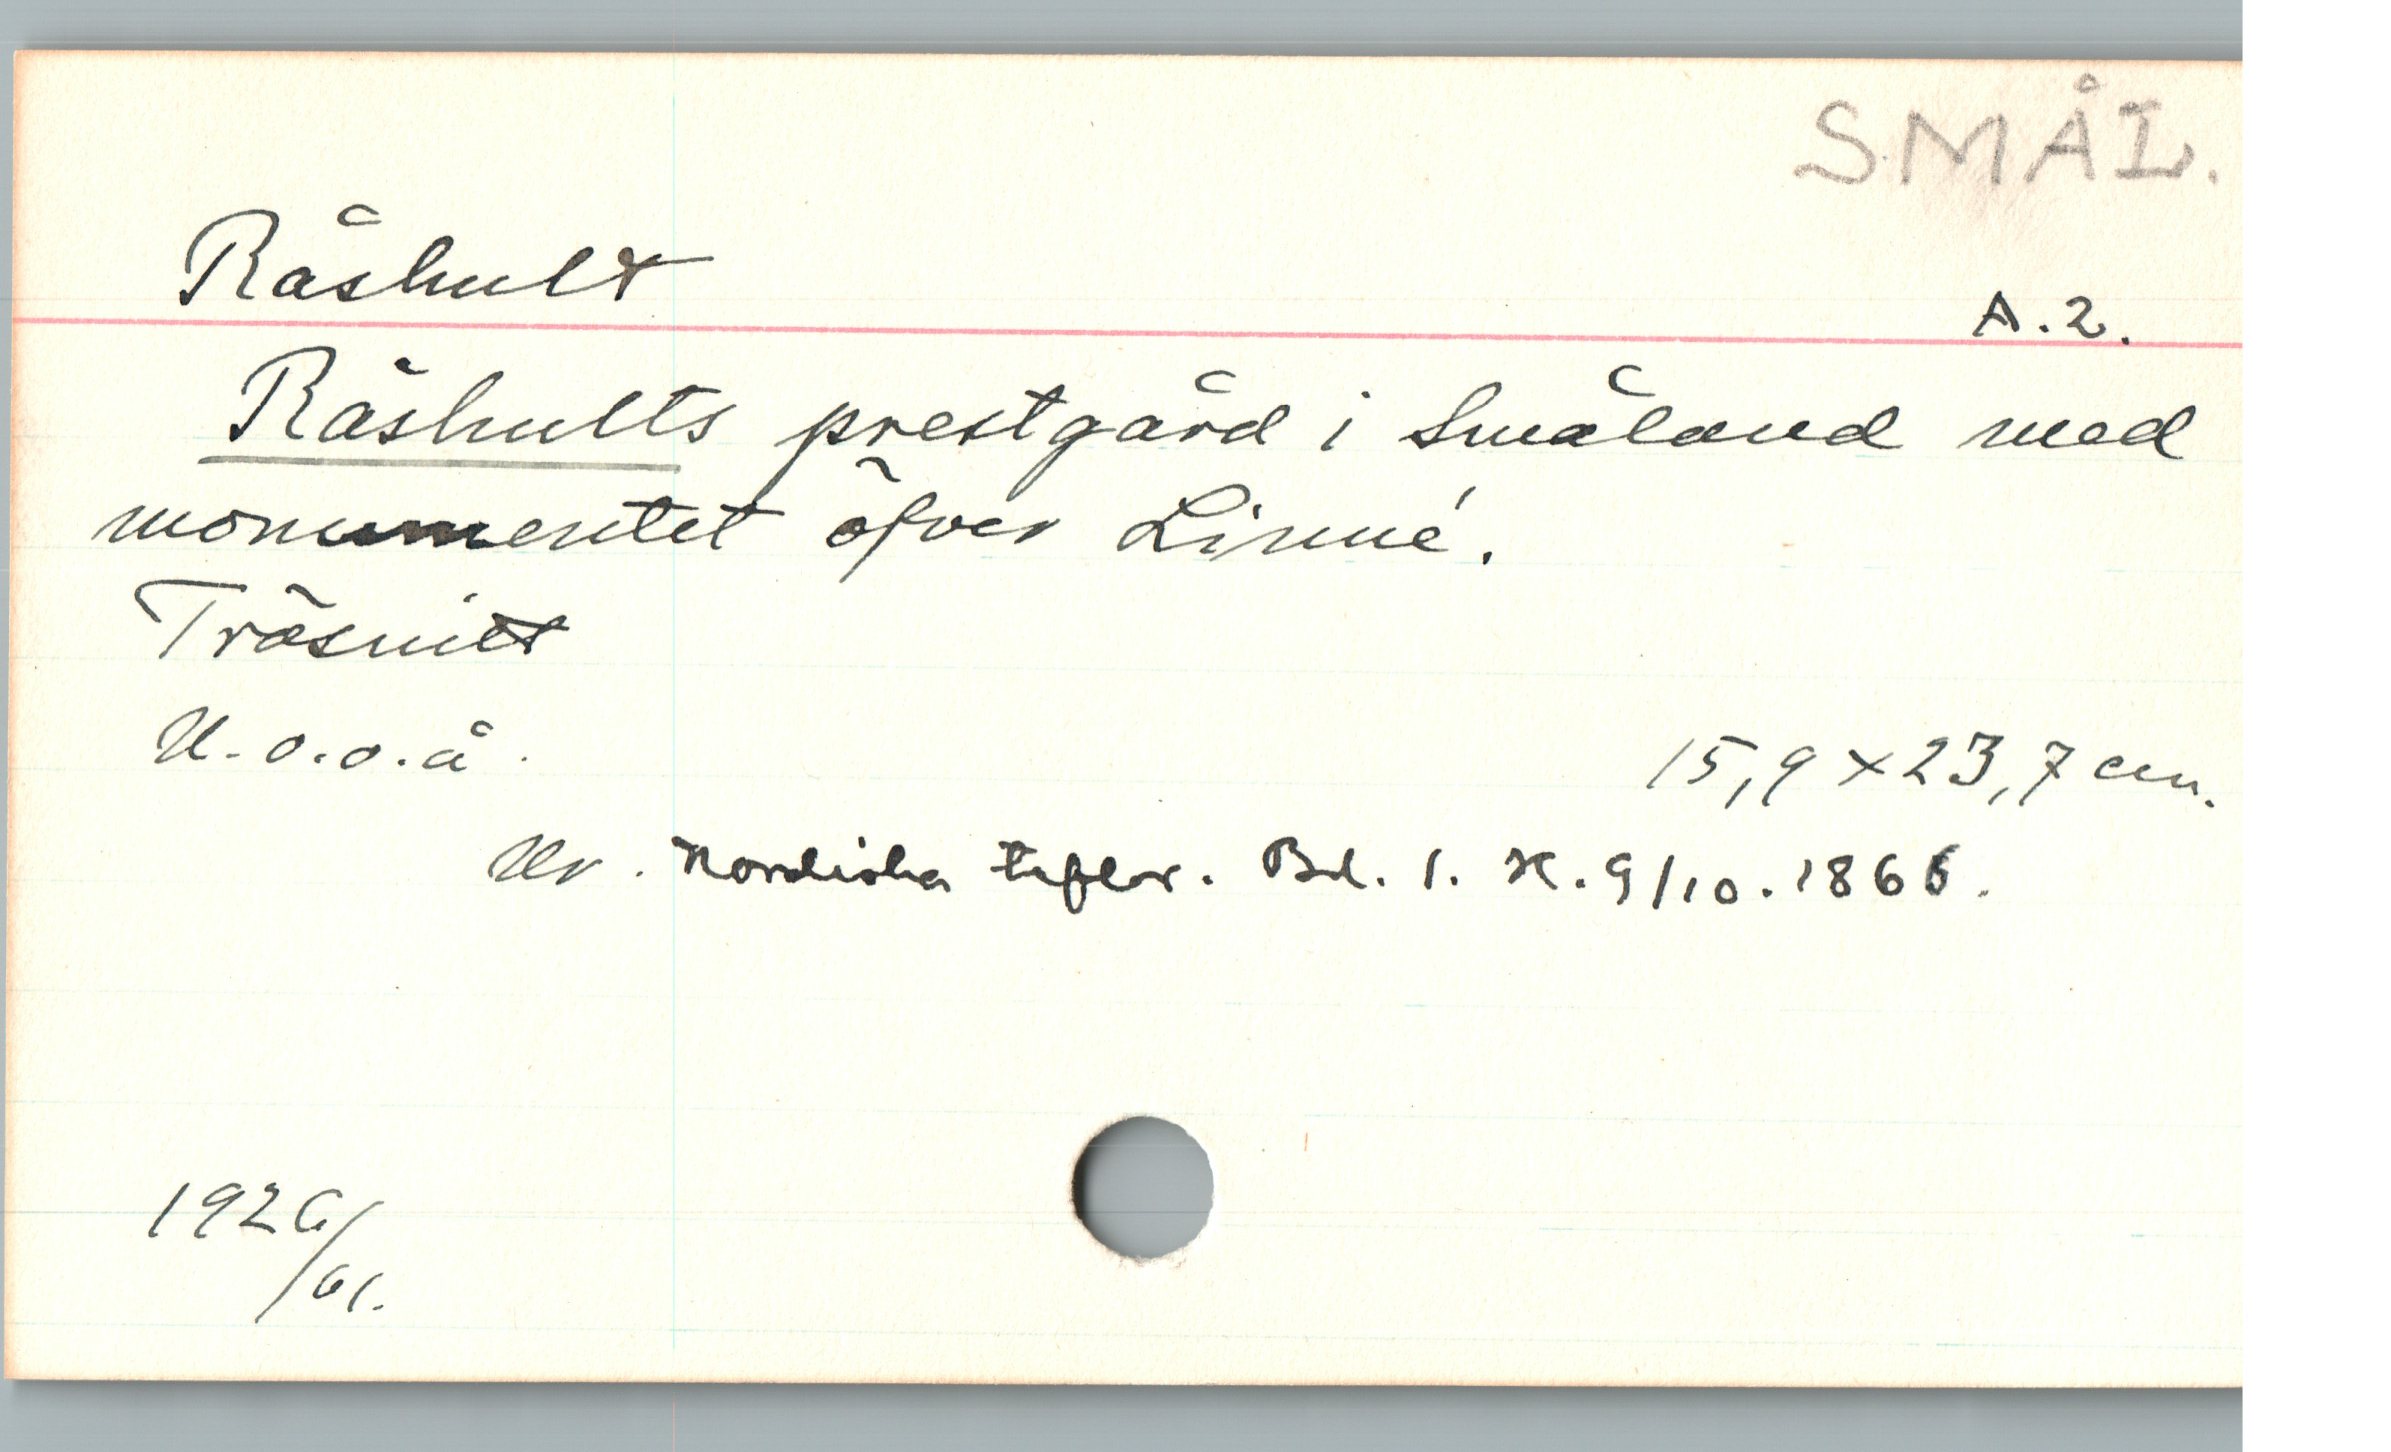 SMÅL.
Råshult
A. 2.
Råshults prestgård i Småland med
monumentet öfver Linné.
Träsnitt
U. o. o. å.
15,9 × 23,7 cm.
Ur. Nordiska taflor. Bd. 1. H. 9/10. 1866.
1926/
61.